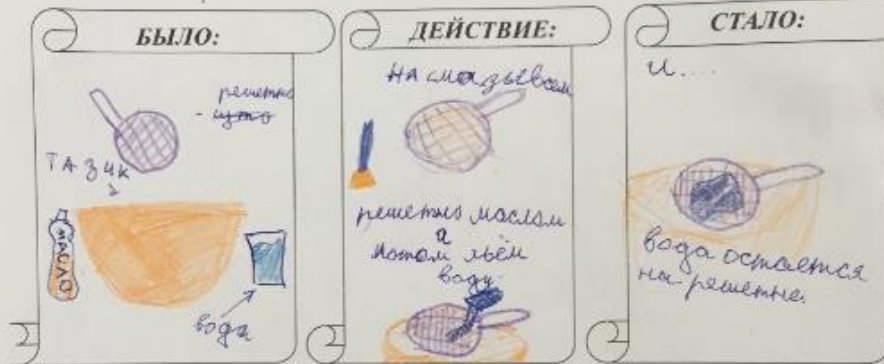 БЫЛО:
решетно
- сито
ТАЗИК
МАСЛО
вода
ДЕЙСТВИЕ:
На смазывсем
решетно маслом
а
потом льём
воду
СТАЛО:
и....
вода остается
на решетне.